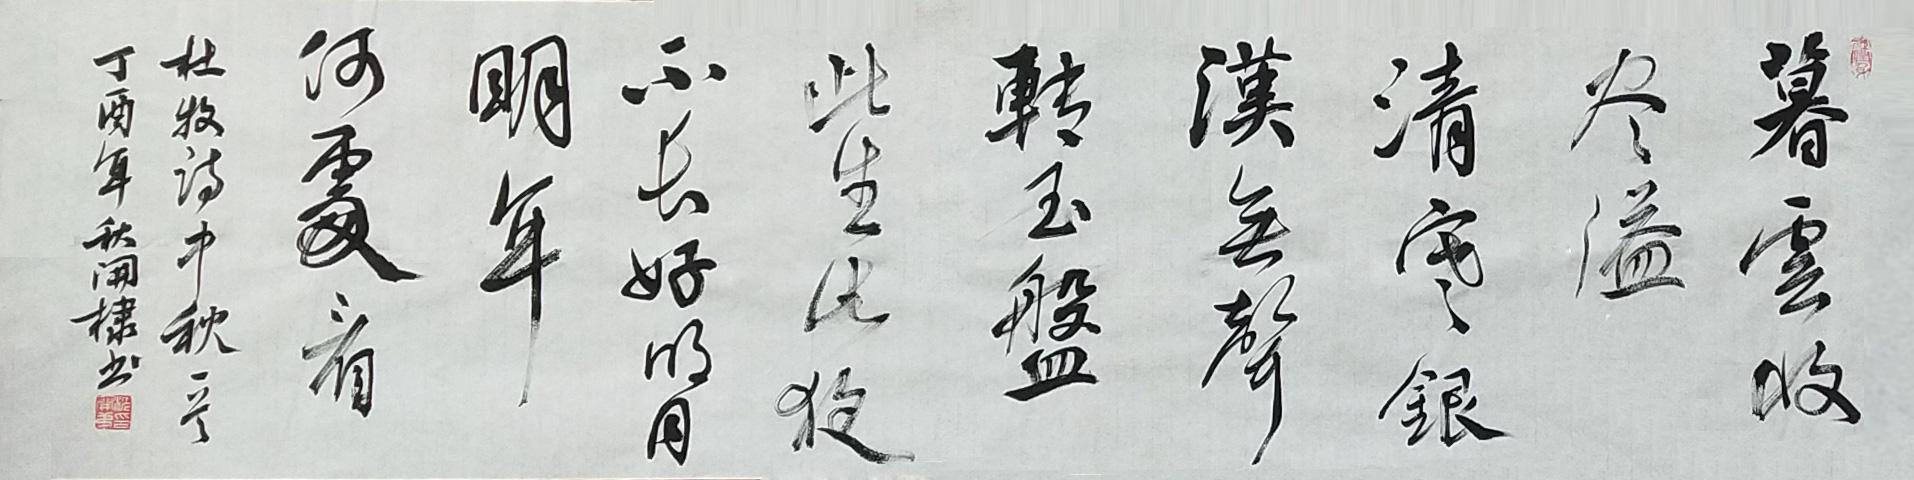 暮雲收
尽溢
清寒銀
漢無聲
轉玉盤
此生此夜
不長好明月
明年
何處看
杜牧诗中秋一首
丁酉年秋開棣书